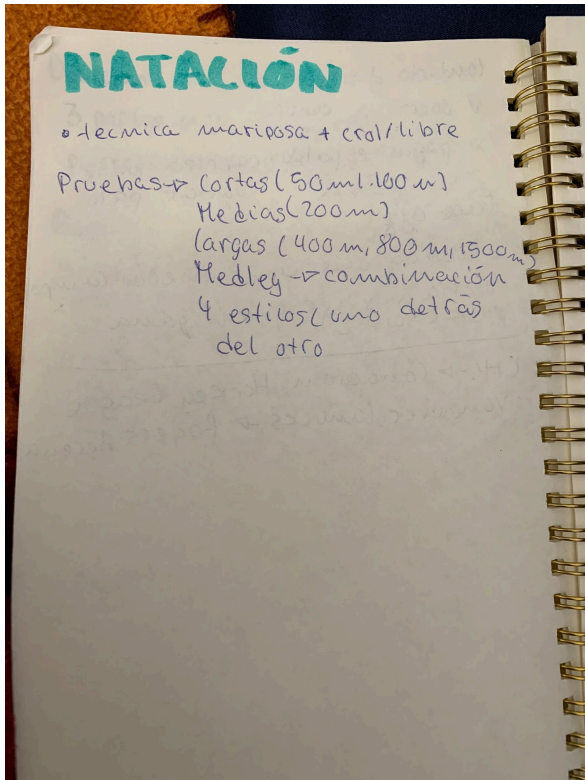 NATACIÓN
• tecnica mariposa + crol/libre
Pruebas → Cortas (50m1.100m)
Medias (200m)
largas (400m, 800m, 1500m)
Medley → combinación
4 estilos (uno detrás
del otro